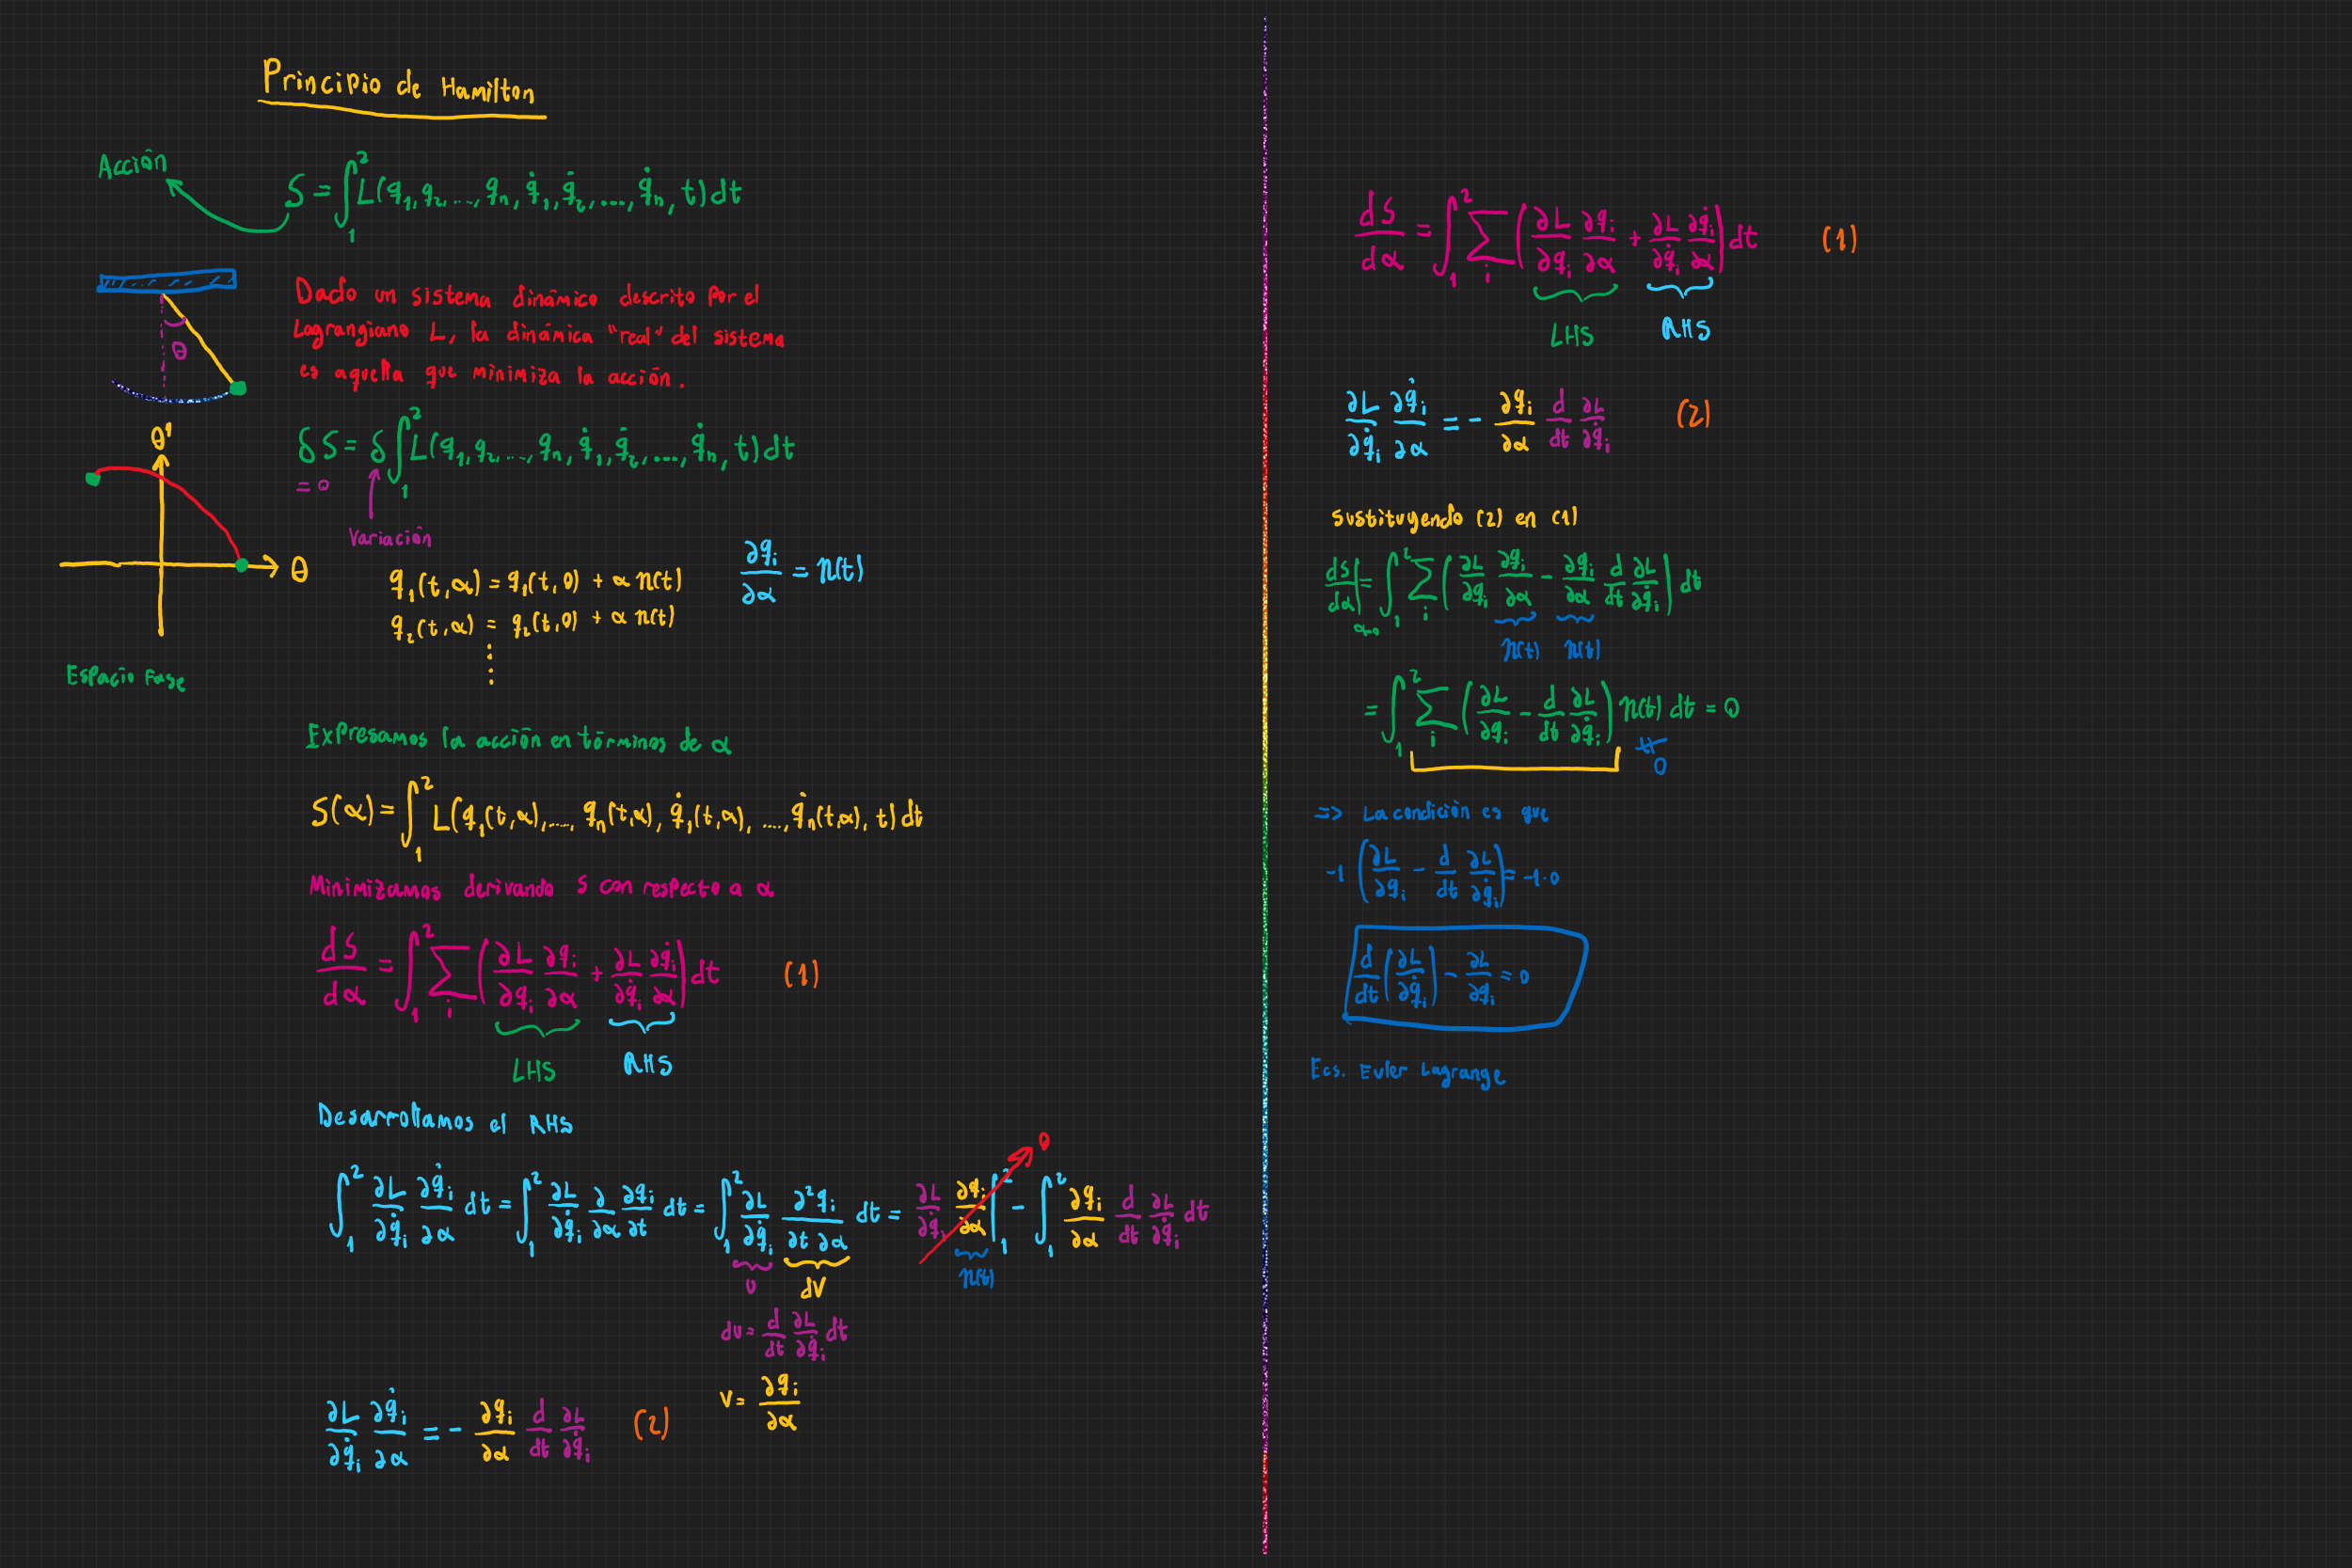 Principio de Hamilton
Acción
S = ∫₁² L(q₁, q₂, ..., qₙ, q̇₁, q̇₂, ..., q̇ₙ, t) dt
θ
Dado un sistema dinámico descrito por el
Lagrangiano L, la dinámica "real" del sistema
es aquella que minimiza la acción.
δS = δ ∫₁² L(q₁, q₂, ..., qₙ, q̇₁, q̇₂, ..., q̇ₙ, t) dt
= 0
Variación
θ'
θ
Espacio Fase
q₁(t,α) = q₁(t,0) + α η(t)
∂qᵢ/∂α = η(t)
q₂(t,α) = q₂(t,0) + α η(t)
⋮
Expresamos la acción en términos de α
S(α) = ∫₁² L(q₁(t,α), ...., qₙ(t,α), q̇₁(t,α), ...., q̇ₙ(t,α), t) dt
Minimizamos derivando S con respecto a α
dS/dα = ∫₁² Σᵢ (∂L/∂qᵢ ∂qᵢ/∂α + ∂L/∂q̇ᵢ ∂q̇ᵢ/∂α) dt (1)
LHS RHS
Desarrollamos el RHS
∫₁² ∂L/∂q̇ᵢ ∂q̇ᵢ/∂α dt = ∫₁² ∂L/∂q̇ᵢ ∂/∂α ∂qᵢ/∂t dt = ∫₁² ∂L/∂q̇ᵢ ∂²qᵢ/∂t ∂α dt = ∂L/∂q̇ᵢ ∂qᵢ/∂α |₁² - ∫₁² ∂qᵢ/∂α d/dt ∂L/∂q̇ᵢ dt
0
u dV η(t)
du = d/dt ∂L/∂q̇ᵢ dt
v = ∂qᵢ/∂α
∂L/∂q̇ᵢ ∂q̇ᵢ/∂α = - ∂qᵢ/∂α d/dt ∂L/∂q̇ᵢ (2)
dS/dα = ∫₁² Σᵢ (∂L/∂qᵢ ∂qᵢ/∂α + ∂L/∂q̇ᵢ ∂q̇ᵢ/∂α) dt (1)
LHS RHS
∂L/∂q̇ᵢ ∂q̇ᵢ/∂α = - ∂qᵢ/∂α d/dt ∂L/∂q̇ᵢ (2)
Sustituyendo (2) en (1)
dS/dα |α=0 = ∫₁² Σᵢ (∂L/∂qᵢ ∂qᵢ/∂α - ∂qᵢ/∂α d/dt ∂L/∂q̇ᵢ) dt
η(t) η(t)
= ∫₁² Σᵢ (∂L/∂qᵢ - d/dt ∂L/∂q̇ᵢ) η(t) dt = 0
≠
0
=> La condición es que
-1 (∂L/∂qᵢ - d/dt ∂L/∂q̇ᵢ) = -1·0
d/dt (∂L/∂q̇ᵢ) - ∂L/∂qᵢ = 0
Ecs. Euler Lagrange